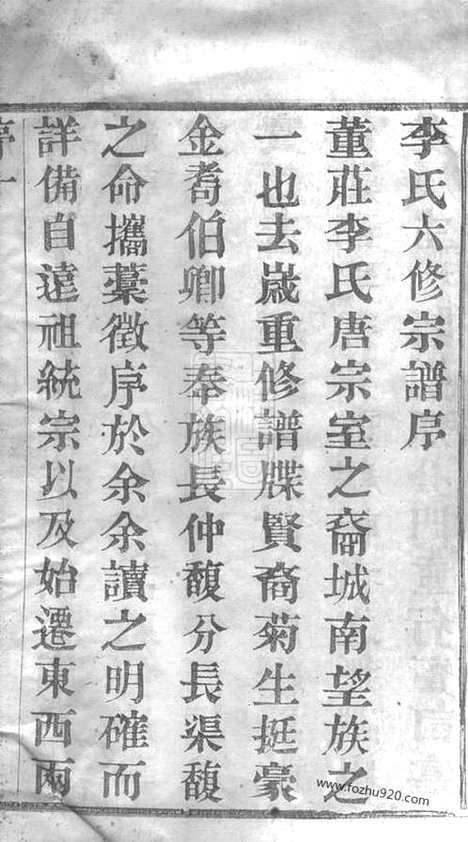 李氏六修宗譜序
董莊李氏唐宗室之裔城南望族之
一也去歲重修譜牒賢裔菊生挺豪
金耈伯卿等奉族長仲馥分長渠馥
之命攜藁徵序於余余讀之明確而
詳備自遠祖統宗以及始遷東西兩
序一
www.fozhu920.com